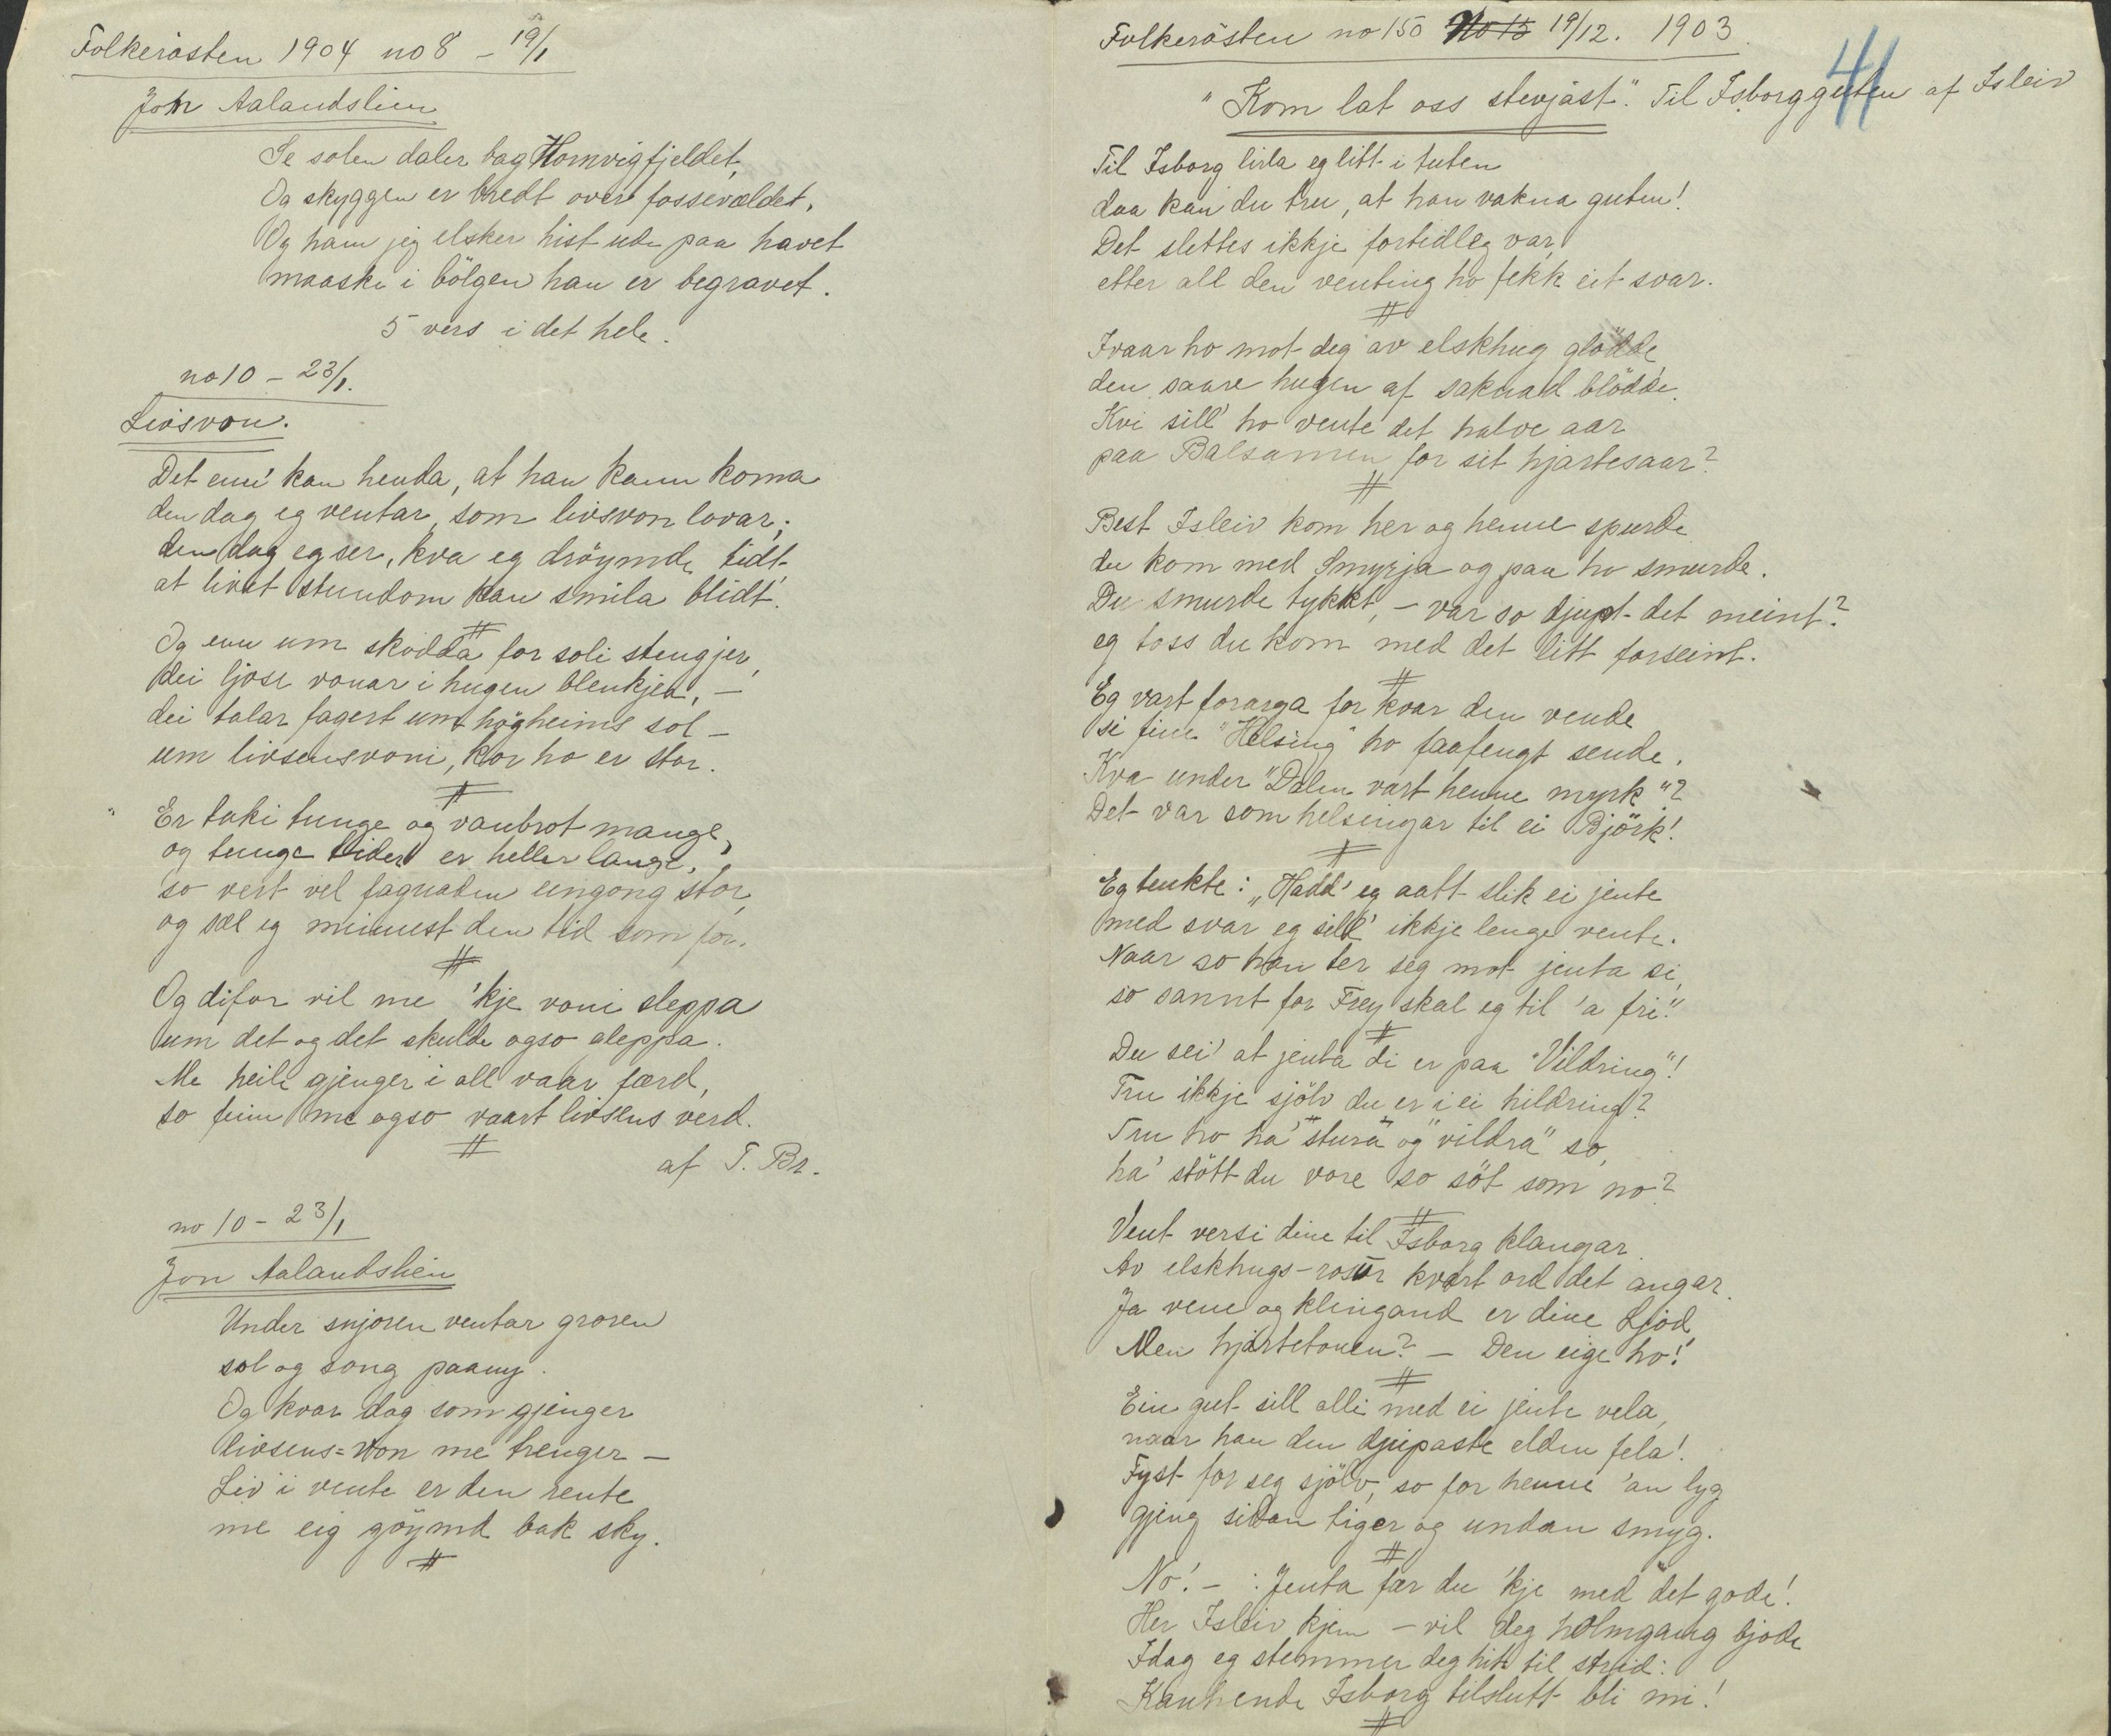 Folkerösten 1904 no 8 – 19/1
Jon Aalandslien
Se solen daler bag Hornvigfjeldet,
Og skyggen er bredt over fossevældet,
Og ham jeg elsker hist ude paa havet
maaske i bölgen han er begravet.
5 vers i det hele.
no 10 – 23/1.
Livsvon.
Det enn' kan henda, at han kann koma
den dag eg ventar, som livsvon lovar;
den dag eg ser, kva eg dröymde tidt
at livet stundom kan smila blidt.
#
Og enn um skodda for soli stengjer,
dei ljose vonar i hugen blenkjer, –
dei talar fagert um högheims sol –
um livsensvoni, kor ho er stor.
#
Er taki tunge og vanbrot mange,
og tunge tider er heller lange,
so vert vel fagnaden eingong stor,
og sæl eg minnest den tid som for.
#
Og difor vil me 'kje voni sleppa
um det og det skulde ogso gleppa.
Me heile gjenger i all vaar færd,
so finn me ogso vaart livsens verd.
#
af T. Br.
no 10 – 23/1
Jon Aalandslien
Under snjoren ventar groren
sol og song paany.
Og kvar dag som gjenger
livsens=von me trenger –
Liv i vente er den rente
me eig göymd bak sky.
#
Folkerösten no 150 No 15 19/12. 1903
41
"Kom lat oss stevjast". Til Isborgguten af Isleiv
Til Isborg lirla eg litt i tuten
daa kan du tru, at han vakna guten!
Det slettes ikkje fortidleg var,
etter all den venting ho fekk eit svar.
#
Ivaar ho mot deg av elskhug glödde
den saare hugen af saknad blödde.
Kvi sill' ho vente det halve aar
paa Balsamen for sit hjartesaar?
#
Best Isleiv kom her og henne spurde
du kom med Smyrja og paa ho smurde.
Du smurde tykkt, – var so djupt det meint?
eg toss du kom med det litt forseint.
#
Eg vart forarga for kvar den vende
si fine "Helsing" ho faafengt sende.
Kva under "Dalen vart henne myrk"?
Det var som helsingar til ei Björk!
#
Eg tenkte: "Hadd' eg aatt slik ei jente
med svar eg sill' ikkje lenge vente.
Naar so han ter seg mot jenta si,
so sannt for Frey skal eg til 'a fri!"
#
Du sei' at jenta di er paa "Vildring"!
Tru ikkje sjölv du er i ei hildring?
Tru ho ha' "stura" og "vildra" so,
ha' stött du vore so söt som no?
#
Vent versi dine til Isborg klangar.
Av elskhugs-rosur kvart ord det angar.
Ja vene og klingand er dine Ljod
Men hjartetonen? – Den eige ho!
#
Ein gut sill alli med ei jente vela,
naar han den djupaste elden fela!
Fyst for seg sjölv, so for henne 'an lyg
gjeng sidan tiger og undan smyg.
#
No! – : Jenta fær du 'kje med det gode!
Her Isleiv kjem – vil deg holmgang bjode
Idag eg stemmer deg hit til strid:
Kanhende Isborg tilslutt bli mi!
#